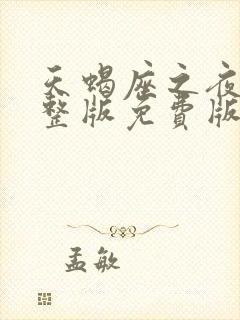 天蝎座之夜
整版免费版
孟敏